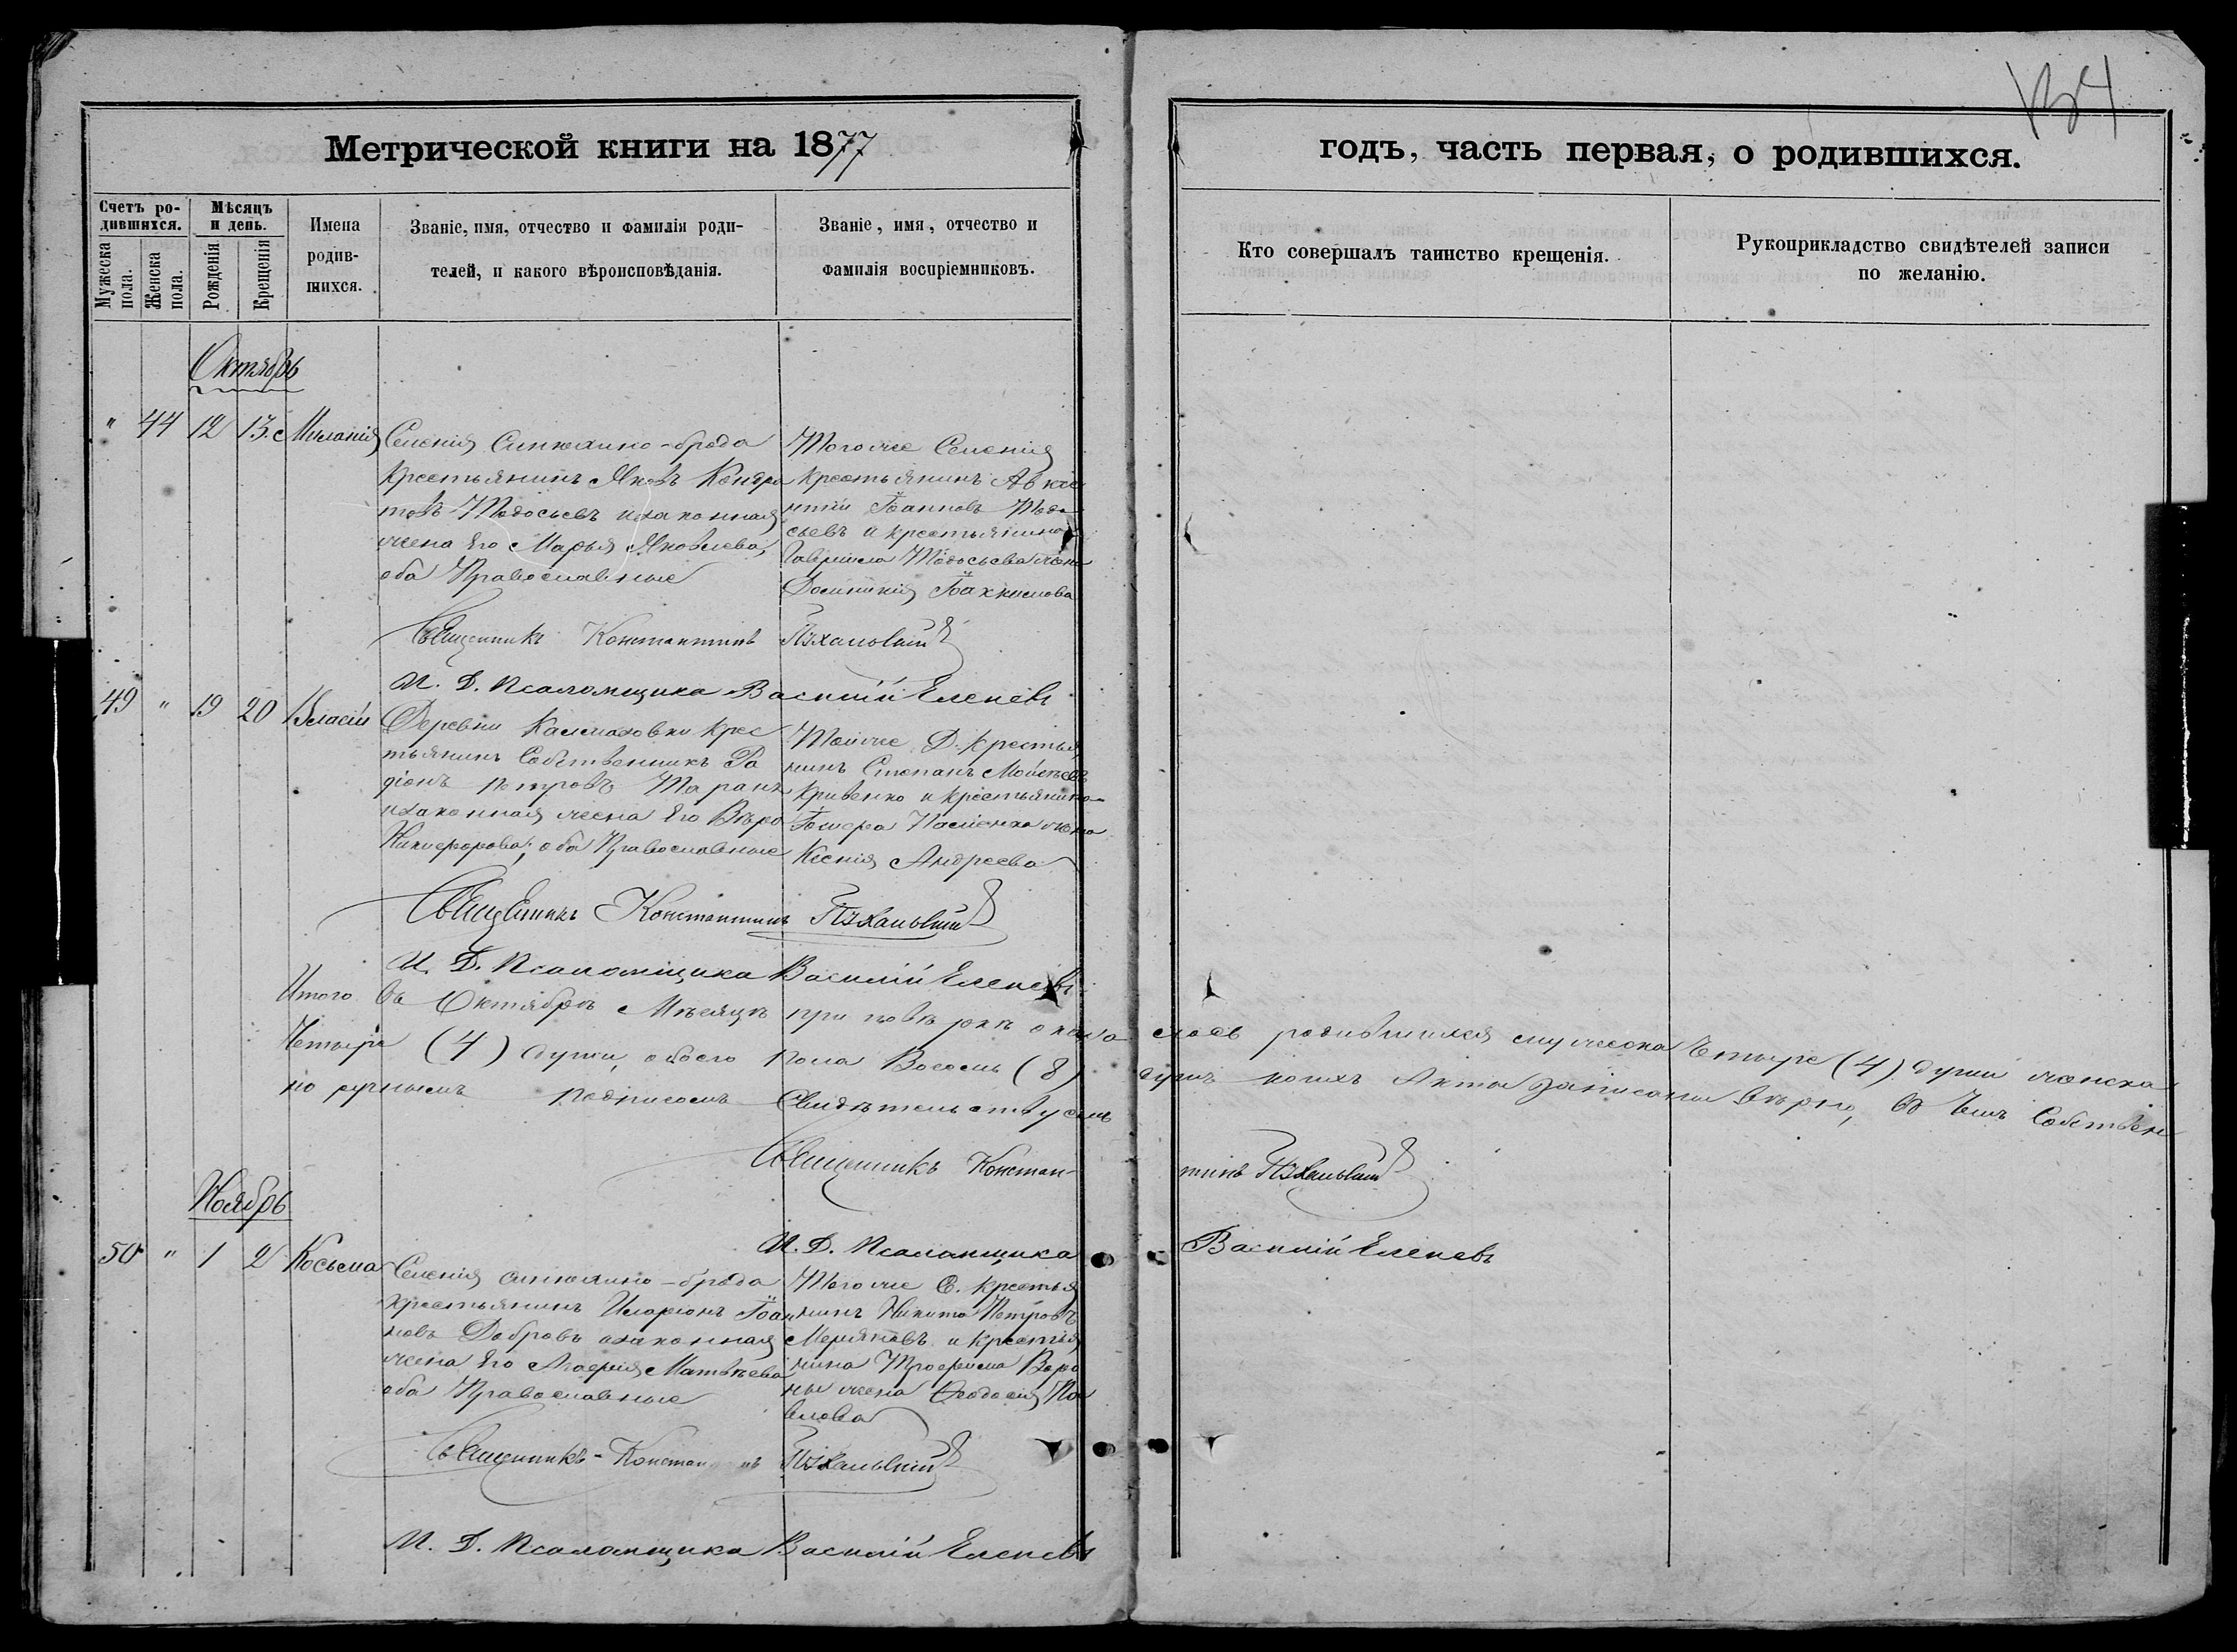 Метрической книги на 1877
годъ, часть первая, о родившихся.
Счетъ родившихся.
Мѣсяцъ и день.
Мужеска пола.
Женска пола.
Рожденія
Крещенія
Имена родившихся.
Званіе, имя, отчество и фамилія родителей, и какого вѣроисповѣданія.
Званіе, имя, отчество и фамилія воспріемниковъ.
Кто совершалъ таинство крещенія.
Рукоприкладство свидѣтелей записи по желанію.
Октябрь
" 44 12 13. Миланія
Селенія Синюхино-брода
крестьянинъ Яковъ Кондра
товъ Тодосьевъ и законная
жена его Марья Яковлева,
оба Православные
Того же Селенія
крестьянинъ Авксе
нтій Іоанновъ Тодо
сьевъ и крестьянина
Гавриила Тодосьева жена
Домникія
Священникъ Константинъ
И. Д. Псаломщика Василій Еленевъ
49 " 19 20 Власій
Деревни Калмазовки крес
тьянинъ Собственникъ Ра
діонъ Петровъ Таранъ
и законная жена его Вѣра
Никифорова, оба Православные
Той же Д. крестья
нинъ Степанъ Мойсѣевъ
Кривенко и крестьянина
жена
Ксенія Андреева
Священникъ Константинъ
И. Д. Псаломщика Василій Еленевъ
Итого въ Октябрѣ Мѣсяцѣ при повѣркѣ оказа лось родившихся мужеска Четыре (4) души женска
Четыре (4) души, обоего пола Восемь (8) душъ коихъ Акты записаны вѣрно, въ чемъ Собствен
но ручнымъ подписомъ Свидѣтельствуемъ
Священникъ Констан- тинъ
И. Д. Псаломщика Василій Еленевъ
Ноябрь
50 " 1 2 Косьма
Селенія Синюхино-брода
крестьянинъ Иларіонъ Іоан
новъ Добровъ и законная
жена его Агафія Матвѣева
оба Православные
Того же С. крестья
нинъ Никита Петровъ
и крестья
нина Трофима Воро
ны жена Феодосія Па
влова
Священникъ Константинъ
И. Д. Псаломщика Василій Еленевъ